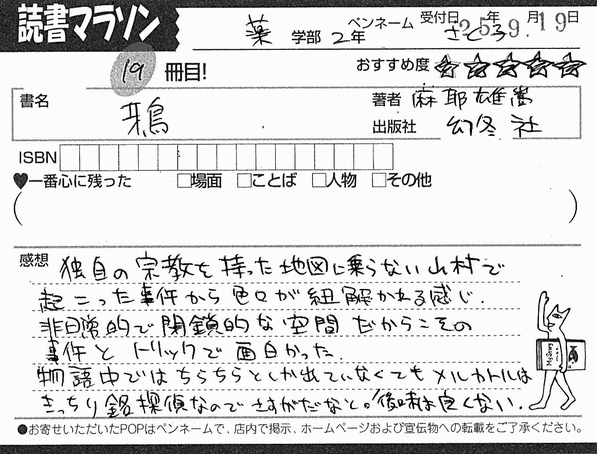 読書マラソン
薬 学部 2年 ペンネーム さとろ 受付日 25年 9.19日
19 冊目! おすすめ度 ☆☆☆☆☆
書名 鴉 著者 麻耶雄嵩
出版社 幻冬社
ISBN
♥一番心に残った □場面 □ことば □人物 □その他
( )
感想 独自の宗教を持った地図に乗らない山村で
起こった事件から色々が紐解かれる感じ.
非日常的で閉鎖的な空間だからこその
事件とトリックで面白かった.
物語中ではちらちらとしか出ていなくてもメルカトルは
きっちり銘探偵なのでさすがだなと。後味は良くない.
●お寄せいただいたPOPはペンネームで、店内で掲示、ホームページおよび宣伝物への転載をご了承ください。